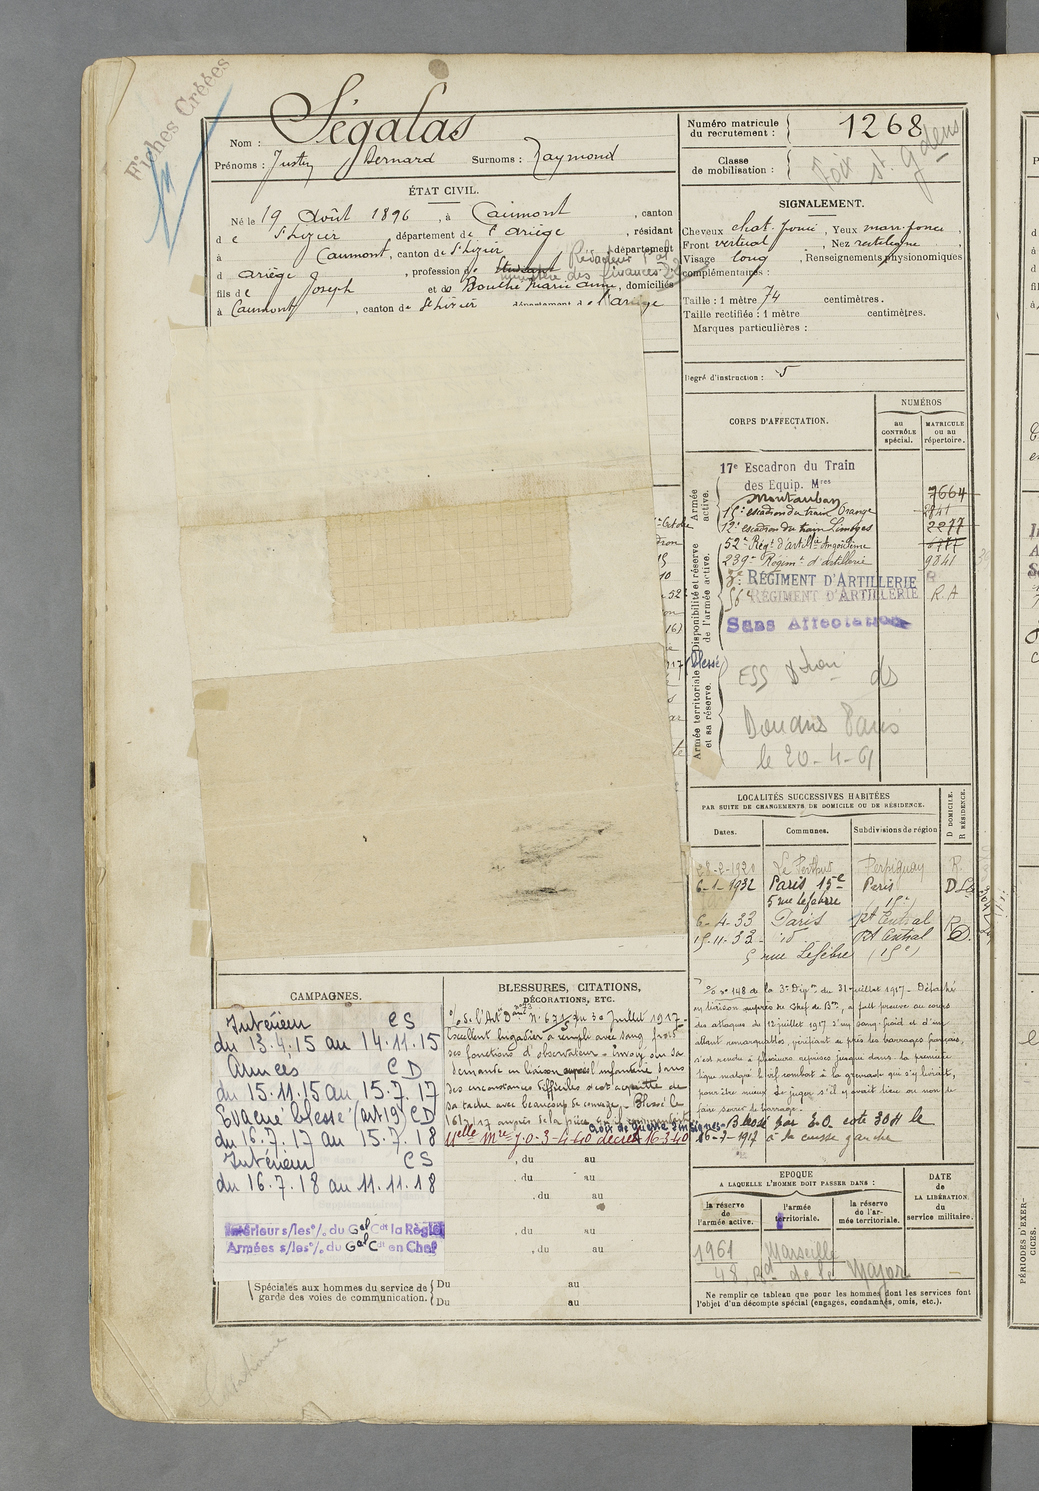 Fiches Créées
Nom : Ségalas
Prénoms : Justin Bernard Surnoms : Raymond
ÉTAT CIVIL.
Né le 19 Août 1896, à Caumont, canton
de St Lizier, département de l'Ariège, résidant
à Caumont, canton de St Lizier, département
d'Ariège, profession de Étudiant Rédacteur pal
ministère des finances
fils de Joseph et de Bouche Marie Anne, domiciliés
à Caumont, canton de St Lizier, département de l'Ariège
Numéro matricule du recrutement : 1268
Classe de mobilisation :
Foix St Gaudens
SIGNALEMENT.
Cheveux chat. foncé, Yeux marr. foncé,
Front vertical, Nez rectiligne,
Visage long, Renseignements physionomiques
complémentaires :
Taille : 1 mètre 74 centimètres.
Taille rectifiée : 1 mètre centimètres.
Marques particulières :
Degré d'instruction : 5
CORPS D'AFFECTATION.
NUMÉROS
au CONTRÔLE spécial.
MATRICULE ou au répertoire.
Armée active.
Disponibilité et réserve de l'armée active.
Armée territoriale et sa réserve.
17e Escadron du Train
des Equip. Mres
Montauban 7664
15e escadron du train Orange
12e escadron du train Limoges 2277
52e Régt d'artillie Angoulême
239e Régimt d'Artillerie 9841
RÉGIMENT D'ARTILLERIE
56e RÉGIMENT D'ARTILLERIE R.A
Sans Affectation
(Blessé)
ESS Dtion ds
Douans Paris
le 20-4-61
LOCALITÉS SUCCESSIVES HABITÉES
PAR SUITE DE CHANGEMENTS DE DOMICILE OU DE RÉSIDENCE.
Dates. Communes. Subdivisions de région
D DOMICILE. R RÉSIDENCE.
28-2-1920 Le Perthus Perpignan R.
6-1-1932 Paris 15e Paris D
5 rue Lefebvre
6-4-33 Paris Pt Central R
15-11-33 id Pt Central D.
5 rue Lefebvre (15e)
CAMPAGNES.
Intérieur CS
du 13.4.15 au 14.11.15
Armées CD
du 15.11.15 au 15.7.17
Evacué blessé (art 19) CD
du 16.7.17 au 15.7.18
Intérieur CS
du 16.7.18 au 11.11.18
Intérieur s/les o/. du Gal Cdt la Région
Armées s/les o/. du Gal Ct en Chef
Spéciales aux hommes du service de garde des voies de communication. Du au
Du au
BLESSURES, CITATIONS,
DÉCORATIONS, ETC.
Juillet 1917
Excellent brigadier a rempli avec sang froid
ses fonctions d'observateur. Envoyé sur sa
demande en liaison auprès infanterie dans
des circonstances difficiles s'est acquitté de
sa tache avec beaucoup de courage. Blessé le
16.7.17 auprès de la pièce
Croix de Guerre
J.O. 3-4-40 décret 16.3.40
, du au
. du au
. du au
, du au
, du au
148 de la 3e Dion du 31 juillet 1917 - Détaché
en liaison auprès de Chef de Bon, a fait preuve au cours
des attaques du 12 juillet 1917 d'un sang-froid et d'un
allant remarquables, vérifiant de près des barrages français,
s'est rendu à plusieurs reprises jusque dans la première
ligne malgré le vif combat à la grenade qui s'y livrait,
pour être mieux de juger s'il y avait lieu ou non de
faire serrer le barrage.
Blessé par E.O. cote 304 le
16-7-1917 à la cuisse gauche
EPOQUE
A LAQUELLE L'HOMME DOIT PASSER DANS :
la réserve de l'armée active.
l'armée territoriale.
la réserve de l'armée territoriale.
DATE de LA LIBÉRATION. du service militaire.
1961 Marseille
48 Bd de la Major
Ne remplir ce tableau que pour les hommes dont les services font
l'objet d'un décompte spécial (engagés, condamnés, omis, etc.).
PÉRIODES D'EXERCICES.